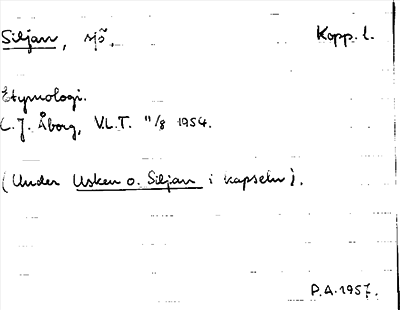 Siljan, sjö. Kopp. l.
Etymologi.
C. J. Åborg, V.L.T. 11/8 1954.
(Under Usken o. Siljan i kapseln).
P.A. 1957.